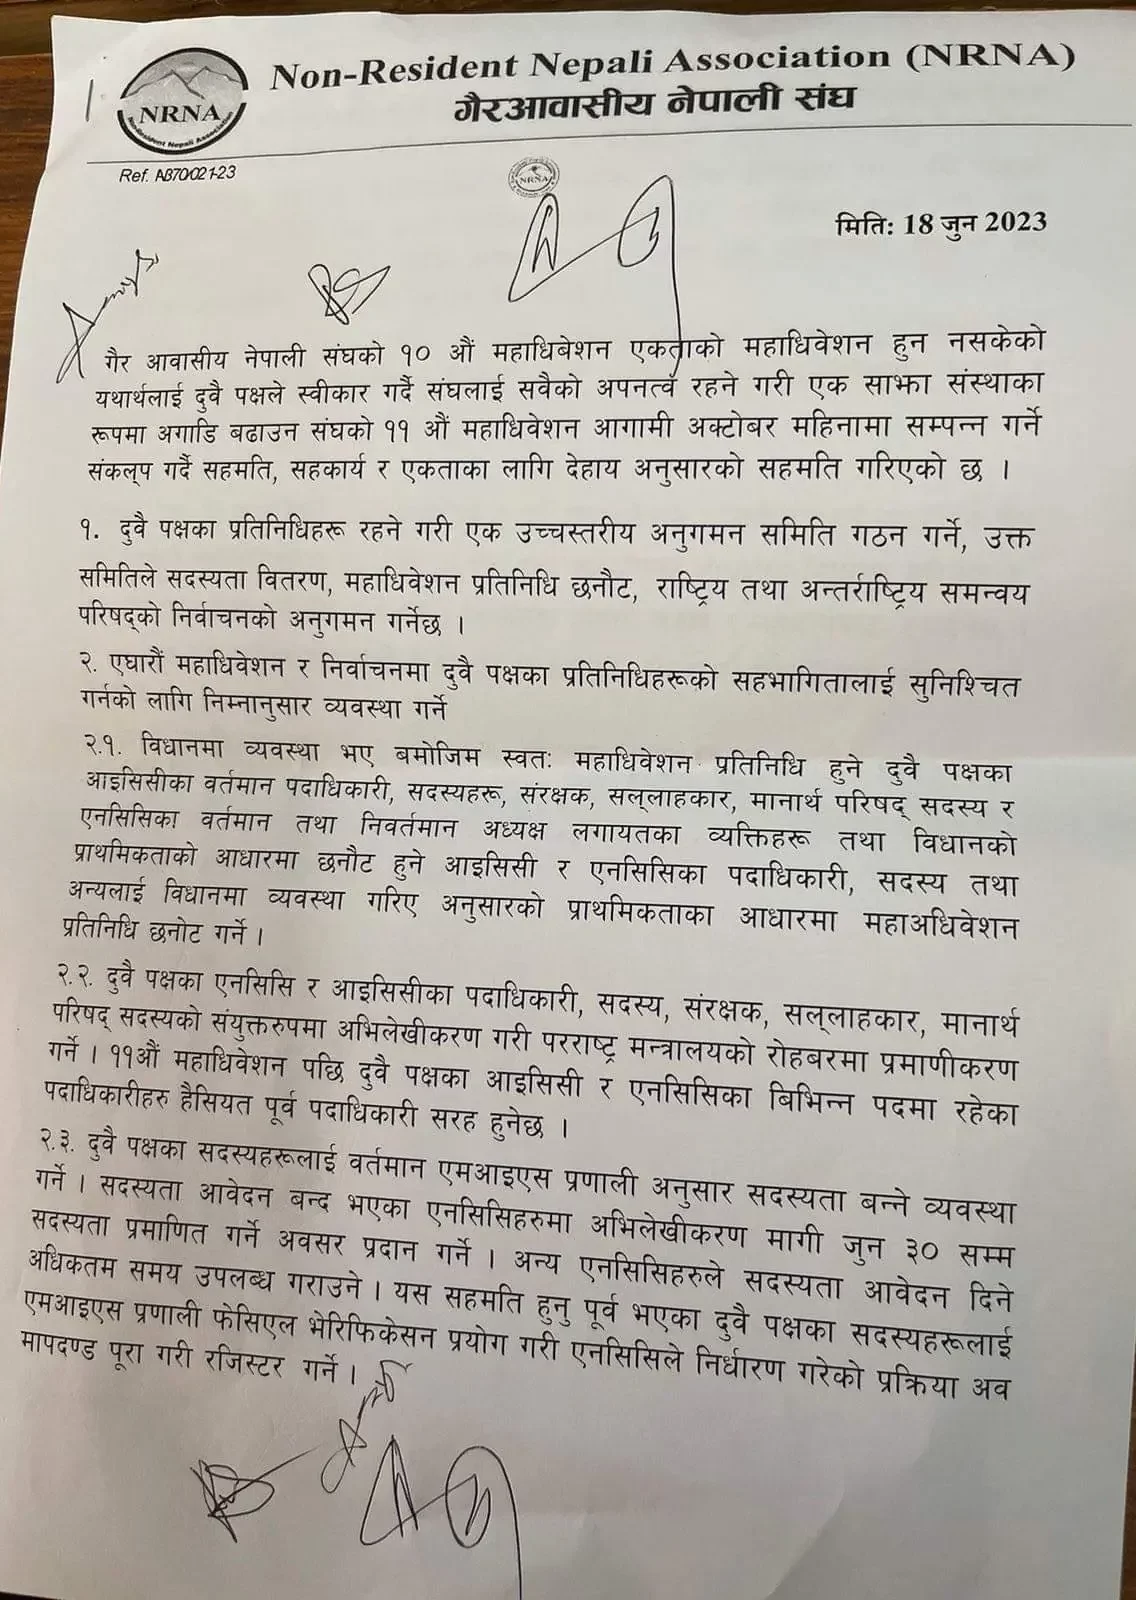 Non-Resident Nepali Association (NRNA)
गैरआवासीय नेपाली संघ
NRNA
Non-Resident Nepali Association
Ref. AB70/021-23
NRNA
मिति: 18 जुन 2023
गैर आवासीय नेपाली संघको १० औं महाधिबेशन एकताको महाधिवेशन हुन नसकेको
यथार्थलाई दुवै पक्षले स्वीकार गर्दै संघलाई सवैको अपनत्व रहने गरी एक साझा संस्थाका
रूपमा अगाडि बढाउन संघको ११ औं महाधिवेशन आगामी अक्टोबर महिनामा सम्पन्न गर्ने
संकल्प गर्दै सहमति, सहकार्य र एकताका लागि देहाय अनुसारको सहमति गरिएको छ ।
१. दुवै पक्षका प्रतिनिधिहरू रहने गरी एक उच्चस्तरीय अनुगमन समिति गठन गर्ने, उक्त
समितिले सदस्यता वितरण, महाधिवेशन प्रतिनिधि छनौट, राष्ट्रिय तथा अन्तर्राष्ट्रिय समन्वय
परिषद्को निर्वाचनको अनुगमन गर्नेछ ।
२. एघारौं महाधिवेशन र निर्वाचनमा दुवै पक्षका प्रतिनिधिहरूको सहभागितालाई सुनिश्चित
गर्नको लागि निम्नानुसार व्यवस्था गर्ने
२.१. विधानमा व्यवस्था भए बमोजिम स्वतः महाधिवेशन प्रतिनिधि हुने दुवै पक्षका
आइसिसीका वर्तमान पदाधिकारी, सदस्यहरू, संरक्षक, सल्लाहकार, मानार्थ परिषद् सदस्य र
एनसिसिका वर्तमान तथा निवर्तमान अध्यक्ष लगायतका व्यक्तिहरू तथा विधानको
प्राथमिकताको आधारमा छनौट हुने आइसिसी र एनसिसिका पदाधिकारी, सदस्य तथा
अन्यलाई विधानमा व्यवस्था गरिए अनुसारको प्राथमिकताका आधारमा महाअधिवेशन
प्रतिनिधि छनोट गर्ने ।
२.२. दुवै पक्षका एनसिसि र आइसिसीका पदाधिकारी, सदस्य, संरक्षक, सल्लाहकार, मानार्थ
परिषद् सदस्यको संयुक्तरुपमा अभिलेखीकरण गरी परराष्ट्र मन्त्रालयको रोहबरमा प्रमाणीकरण
गर्ने । ११औं महाधिवेशन पछि दुवै पक्षका आइसिसी र एनसिसिका बिभिन्न पदमा रहेका
पदाधिकारीहरु हैसियत पूर्व पदाधिकारी सरह हुनेछ ।
२.३. दुवै पक्षका सदस्यहरूलाई वर्तमान एमआइएस प्रणाली अनुसार सदस्यता बन्ने व्यवस्था
गर्ने । सदस्यता आवेदन बन्द भएका एनसिसिहरुमा अभिलेखीकरण मागी जुन ३० सम्म
सदस्यता प्रमाणित गर्ने अवसर प्रदान गर्ने । अन्य एनसिसिहरुले सदस्यता आवेदन दिने
अधिकतम समय उपलब्ध गराउने । यस सहमति हुनु पूर्व भएका दुवै पक्षका सदस्यहरूलाई
एमआइएस प्रणाली फेसिएल भेरिफिकेसन प्रयोग गरी एनसिसिले निर्धारण गरेको प्रक्रिया अव
मापदण्ड पूरा गरी रजिस्टर गर्ने ।